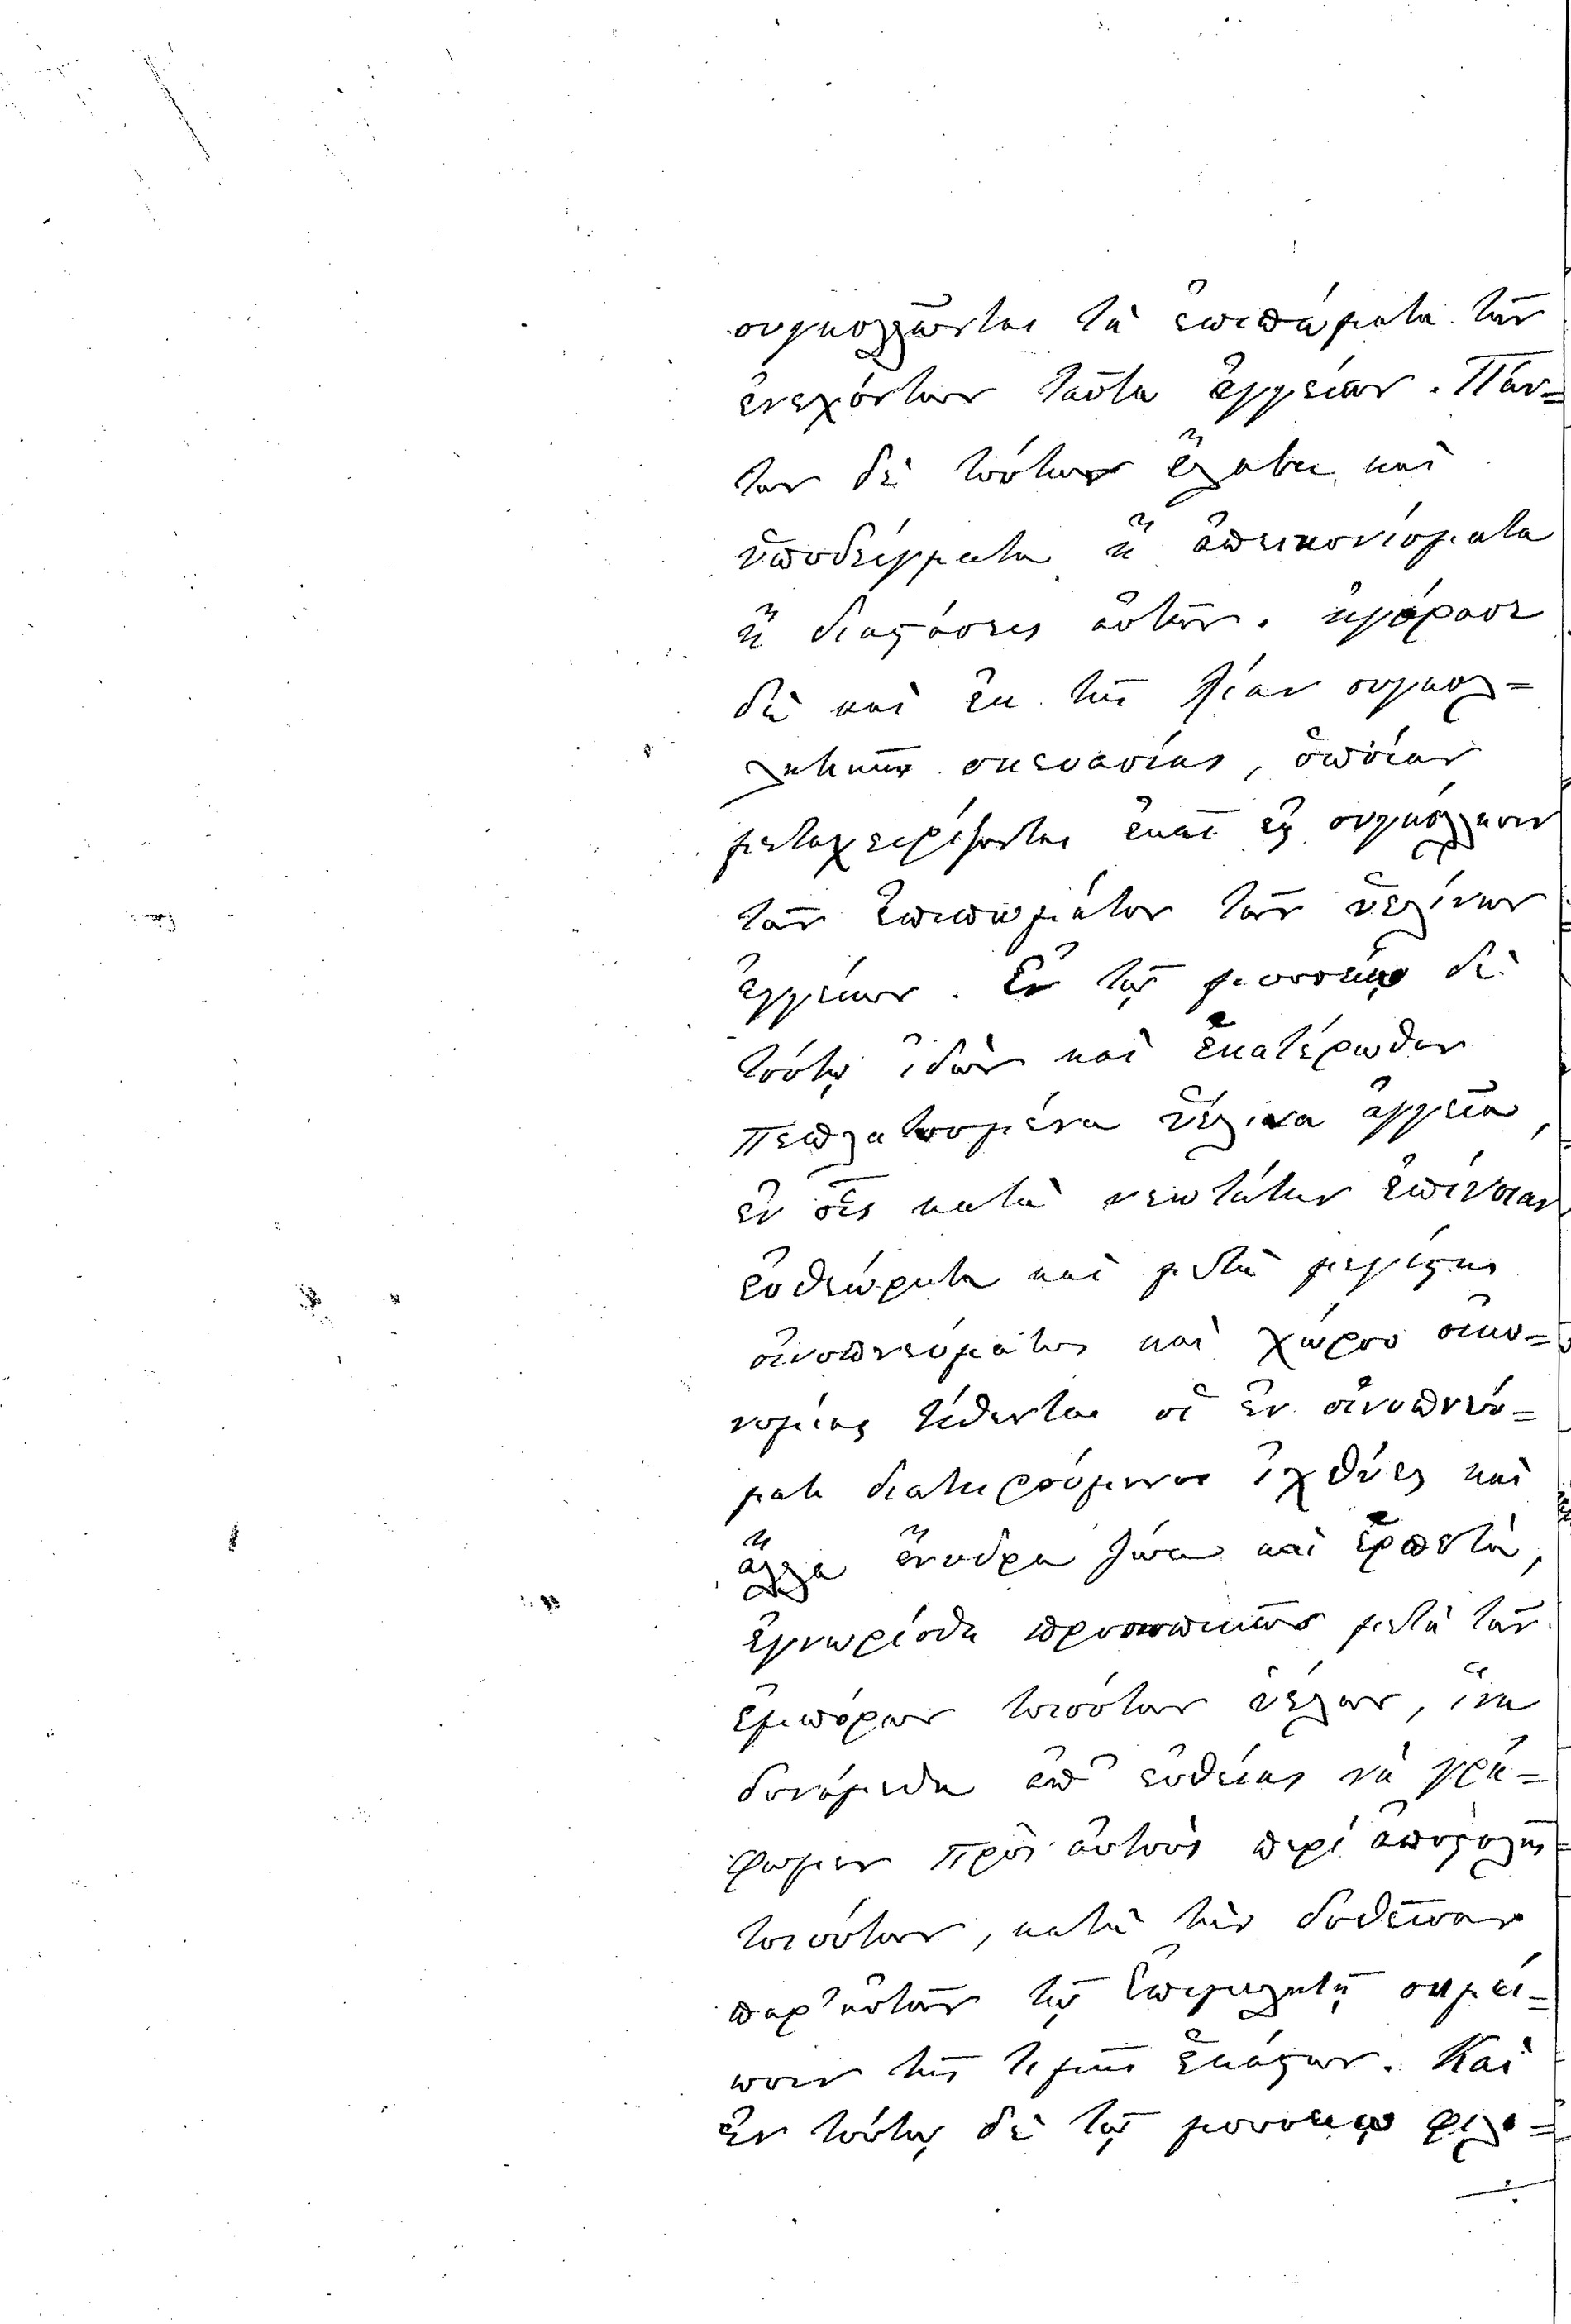 συγκολλῶνται τὰ ἐπιπώματα τῶν
ἐνεχόντων ταῦτα ἀγγείων. Πάν=
των δὲ τούτων ἔλαβε καὶ
ὑποδείγματα ἢ ἀπεικονίσματα
ἢ διαστάσεις αὐτῶν. ἠγόρασε
δὲ καὶ ἐκ τῆς λίαν συγκολ=
λητικῆς σκευασίας, ὁποίαν
μεταχειρίζονται ἐκεῖ εἰς συγκόλλησιν
τῶν ἐπιπωμάτων τῶν ὑελίνων
ἀγγείων. Ἐν τῷ μουσείῳ δὲ
τούτῳ ἰδὼν καὶ ἑκατέρωθεν
πεπλατυσμένα ὑέλινα ἀγγεῖα,
ἐν οἷς κατὰ νεωτάτην ἐπίνοιαν
εὐθεώρητα καὶ μετὰ μεγίστης
οἰνοπνεύματος καὶ χώρου οἰκο=
νομίας τίθενται οἱ ἐν οἰνοπνεύ=
ματι διατηρούμενοι ἰχθύες καὶ
ἄλλα ἔνυδρα ζῶα καὶ ἑρπετὰ,
ἐγνωρίσθη προσωπικῶς μετὰ τῶν
ἐμπόρων τοιούτων ὑέλων, ἵνα
δυνάμεθα ἀπ' εὐθείας νὰ γρά=
φωμεν πρὸς αὐτοὺς περὶ ἀποστολῆς
τοιούτων, κατὰ τὴν δοθεῖσαν
παρ' αὐτῶν τῷ Ἐπιμελητῇ σημεί=
ωσιν τῆς τιμῆς ἑκάστων. Καὶ
ἐν τούτῳ δὲ τῷ μουσείῳ φιλο=